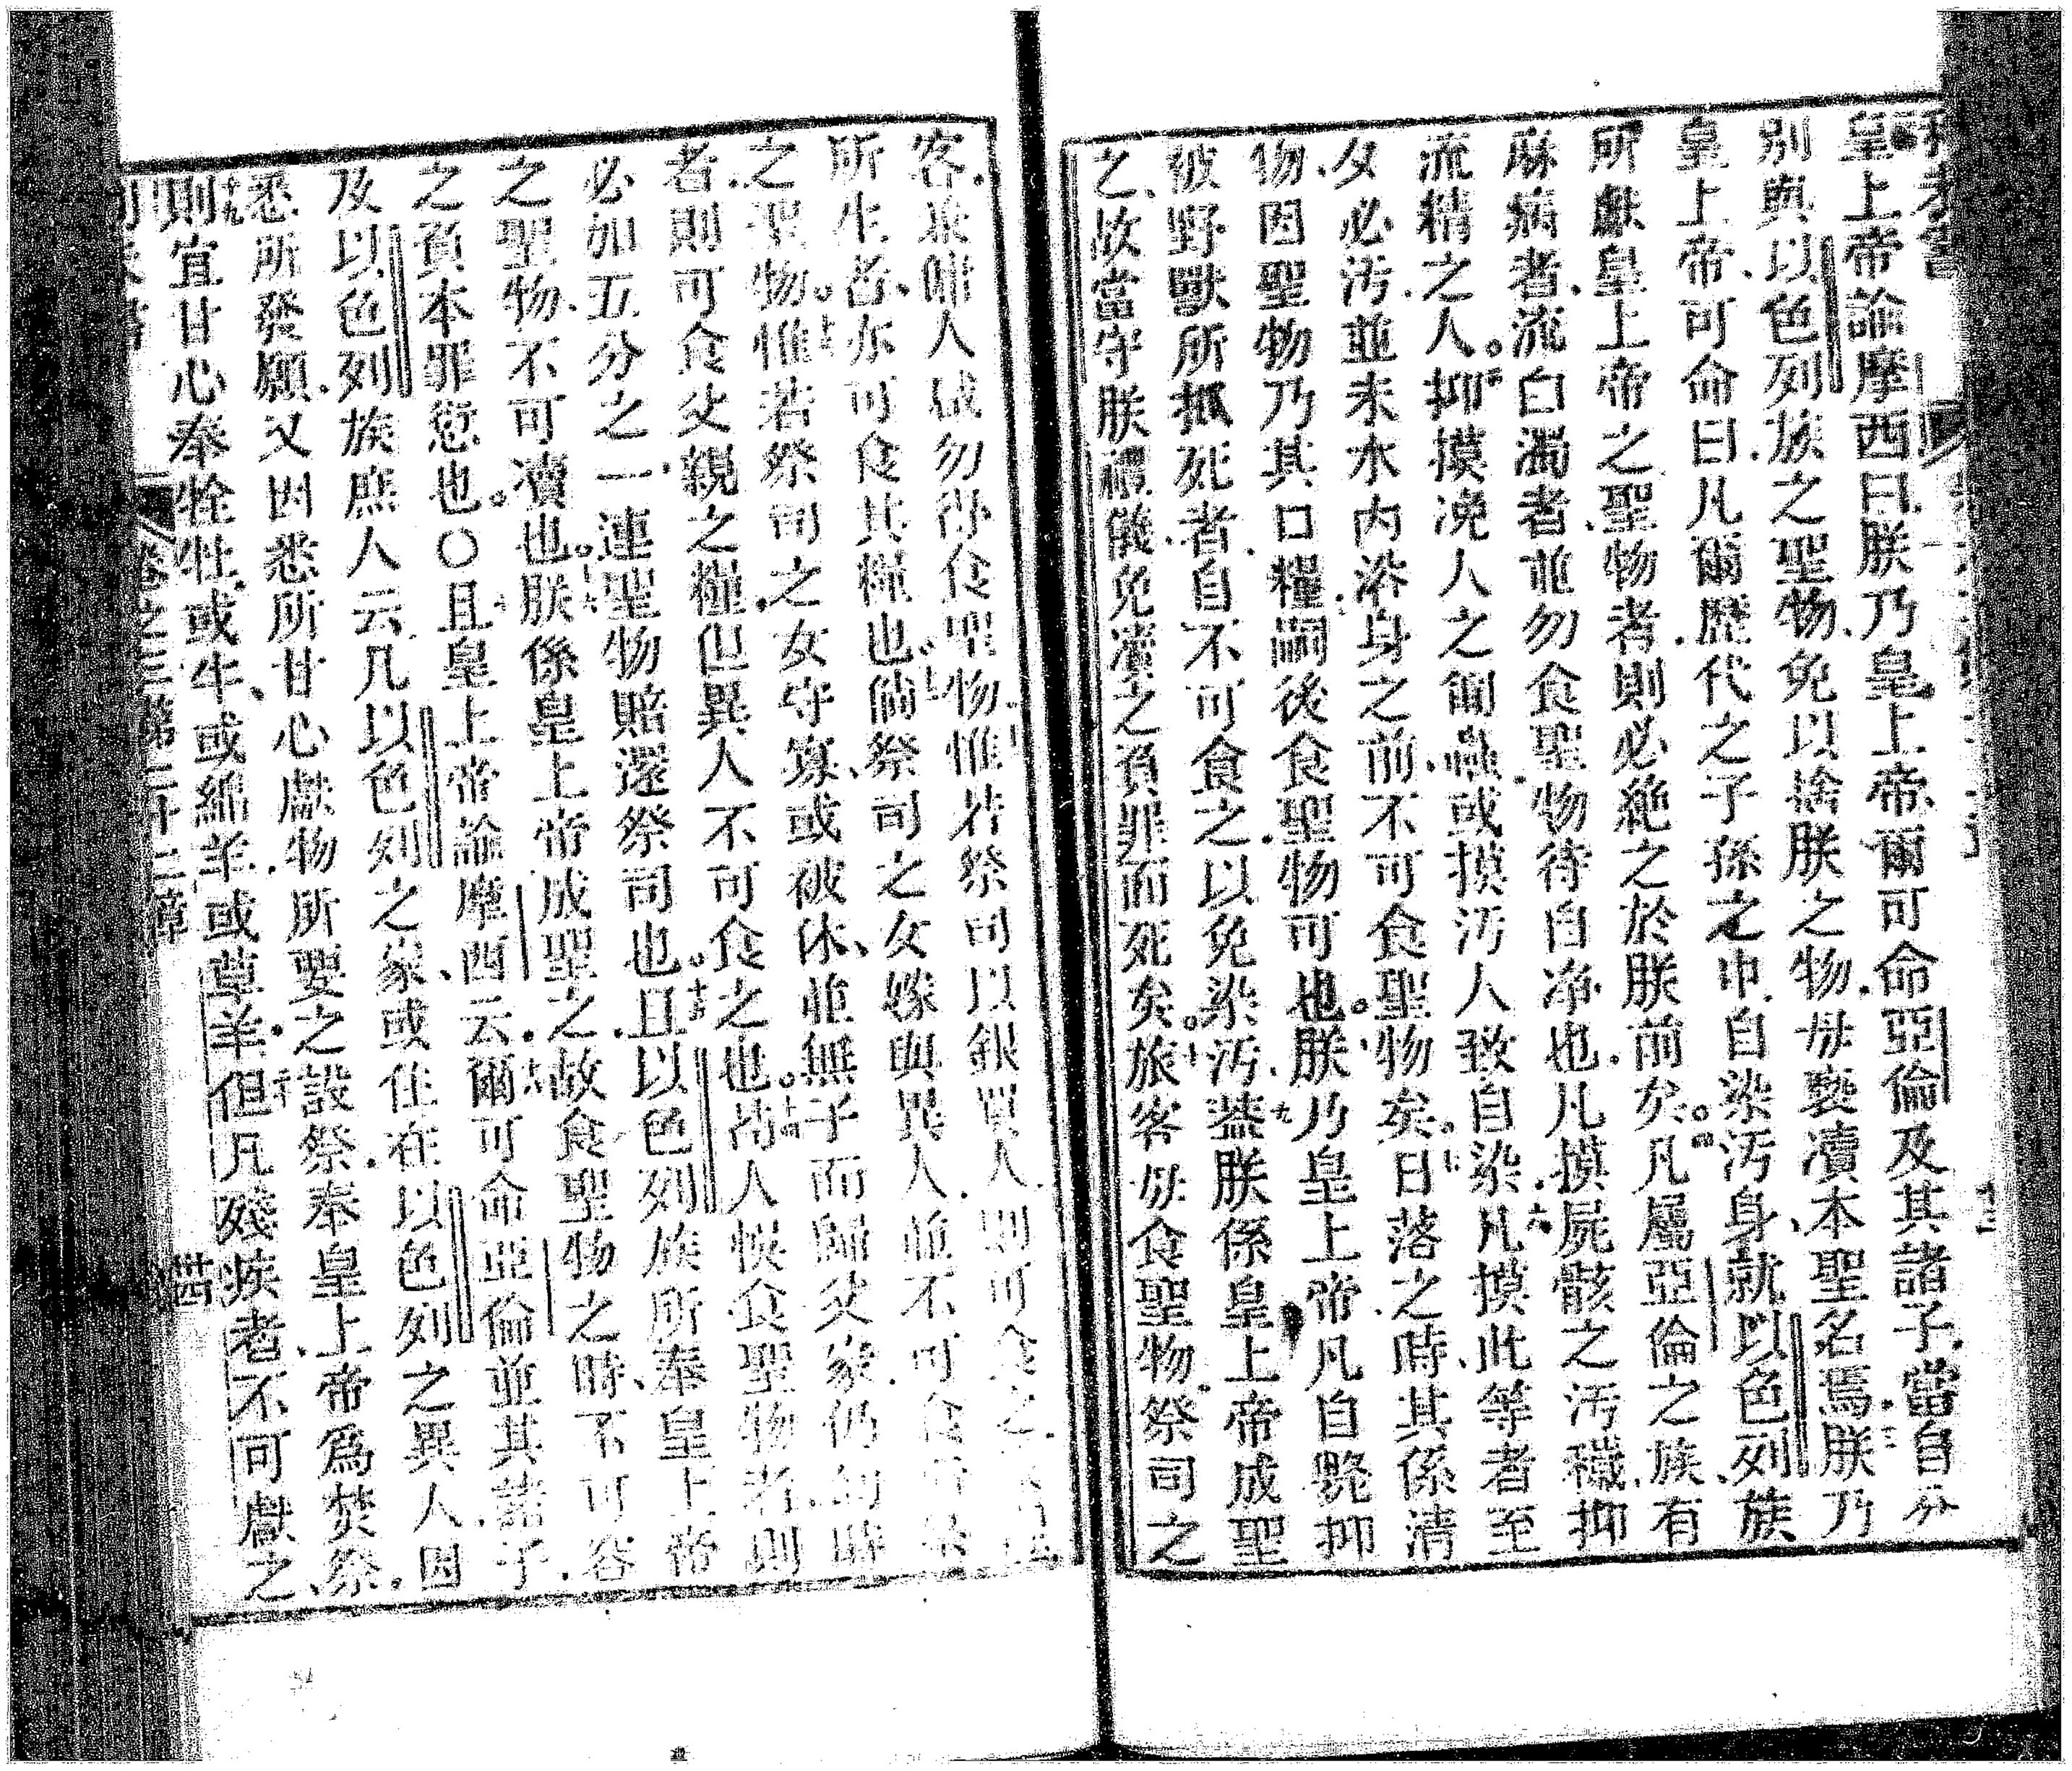 皇上帝諭摩西曰朕乃皇上帝爾可命亞倫及其諸子當自分
別與以色列族之聖物免以捨朕之物毋褻瀆本聖名焉三朕乃
皇上帝可命曰凡爾歷代之子孫之中自染污身就以色列族
所獻皇上帝之聖物者則必絕之於朕前矣四凡屬亞倫之族有
麻病者流白濁者並勿食聖物待自净也凡摸屍骸之污穢抑
流精之人五抑摸凂人之匍蟲或摸污人致自染六凡摸此等者至
夂必污並未水內浴身之前不可食聖物矣七日落之時其係清
物因聖物乃其口糧嗣後食聖物可也八朕乃皇上帝凡自斃抑
被野獸所抓死者自不可食之以免染污九蓋朕係皇上帝成聖
之故當守朕禮儀免瀆之負罪而死矣十旅客毋食聖物祭司之
客並傭人咸勿得食聖物十一惟若祭司以銀買人則可食之
所生者亦可食其糧也十二倘祭司之女嫁與異人並不可食
之聖物十三惟若祭司之女守寡或被休並無子而歸父家仍幼時
者則可食父親之糧但異人不可食之也十四苟人悞食聖物者則
必如五分之一連聖物賠還祭司也十五且以色列族所奉皇上帝
之聖物不可瀆也十六朕係皇上帝成聖之故食聖物之時不可容
之負本罪愆也〇十七且皇上帝諭摩西云十八爾可命亞倫並其諸子
及以色列族庶人云凡以色列之家或住在以色列之異人因
悉所發願又因悉所甘心獻物所要之設祭奉皇上帝爲焚祭
十九則宜甘心奉牷牡或牛或綿羊或草羊二十但凡殘疾者不可獻之
卷之三第二十二章 卌四